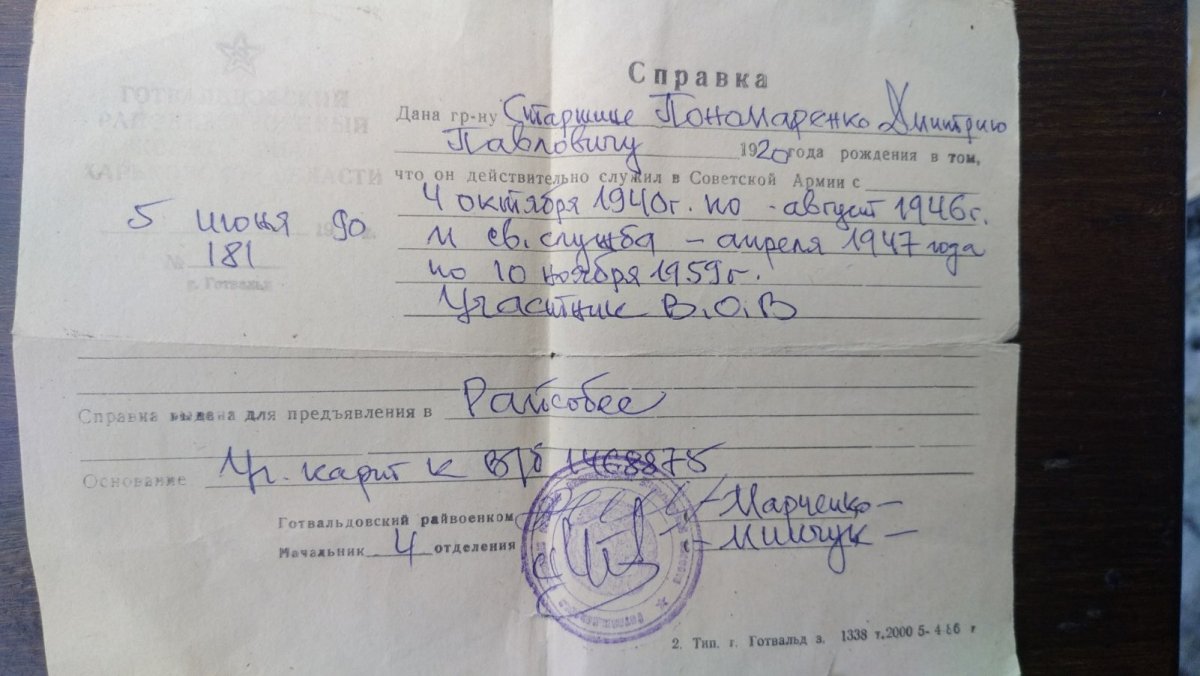 ГОТВАЛЬДОВСКИЙ
РАЙОННЫЙ ВОЕННЫЙ
ХАРЬКОВСКОЙ ОБЛАСТИ
5 июня 1990 г.
№ 181
г. Готвальд
Справка
Дана гр-ну Старшине Пономаренко Дмитрию
Павловичу 1920 года рождения в том,
что он действительно служил в Советской Армии с
4 октября 1940г. по - август 1946г.
и св. служба - апреля 1947 года
по 10 ноября 1959г.
Участник В.О.В
Справка выдана для предъявления в Райсобес
Основание Уч. карт к в/б 1468875
Готвальдовский райвоенком - Марченко -
Начальник 4 отделения
2. Тип. г. Готвальд з. 1338 т.2000 5-4 86 г